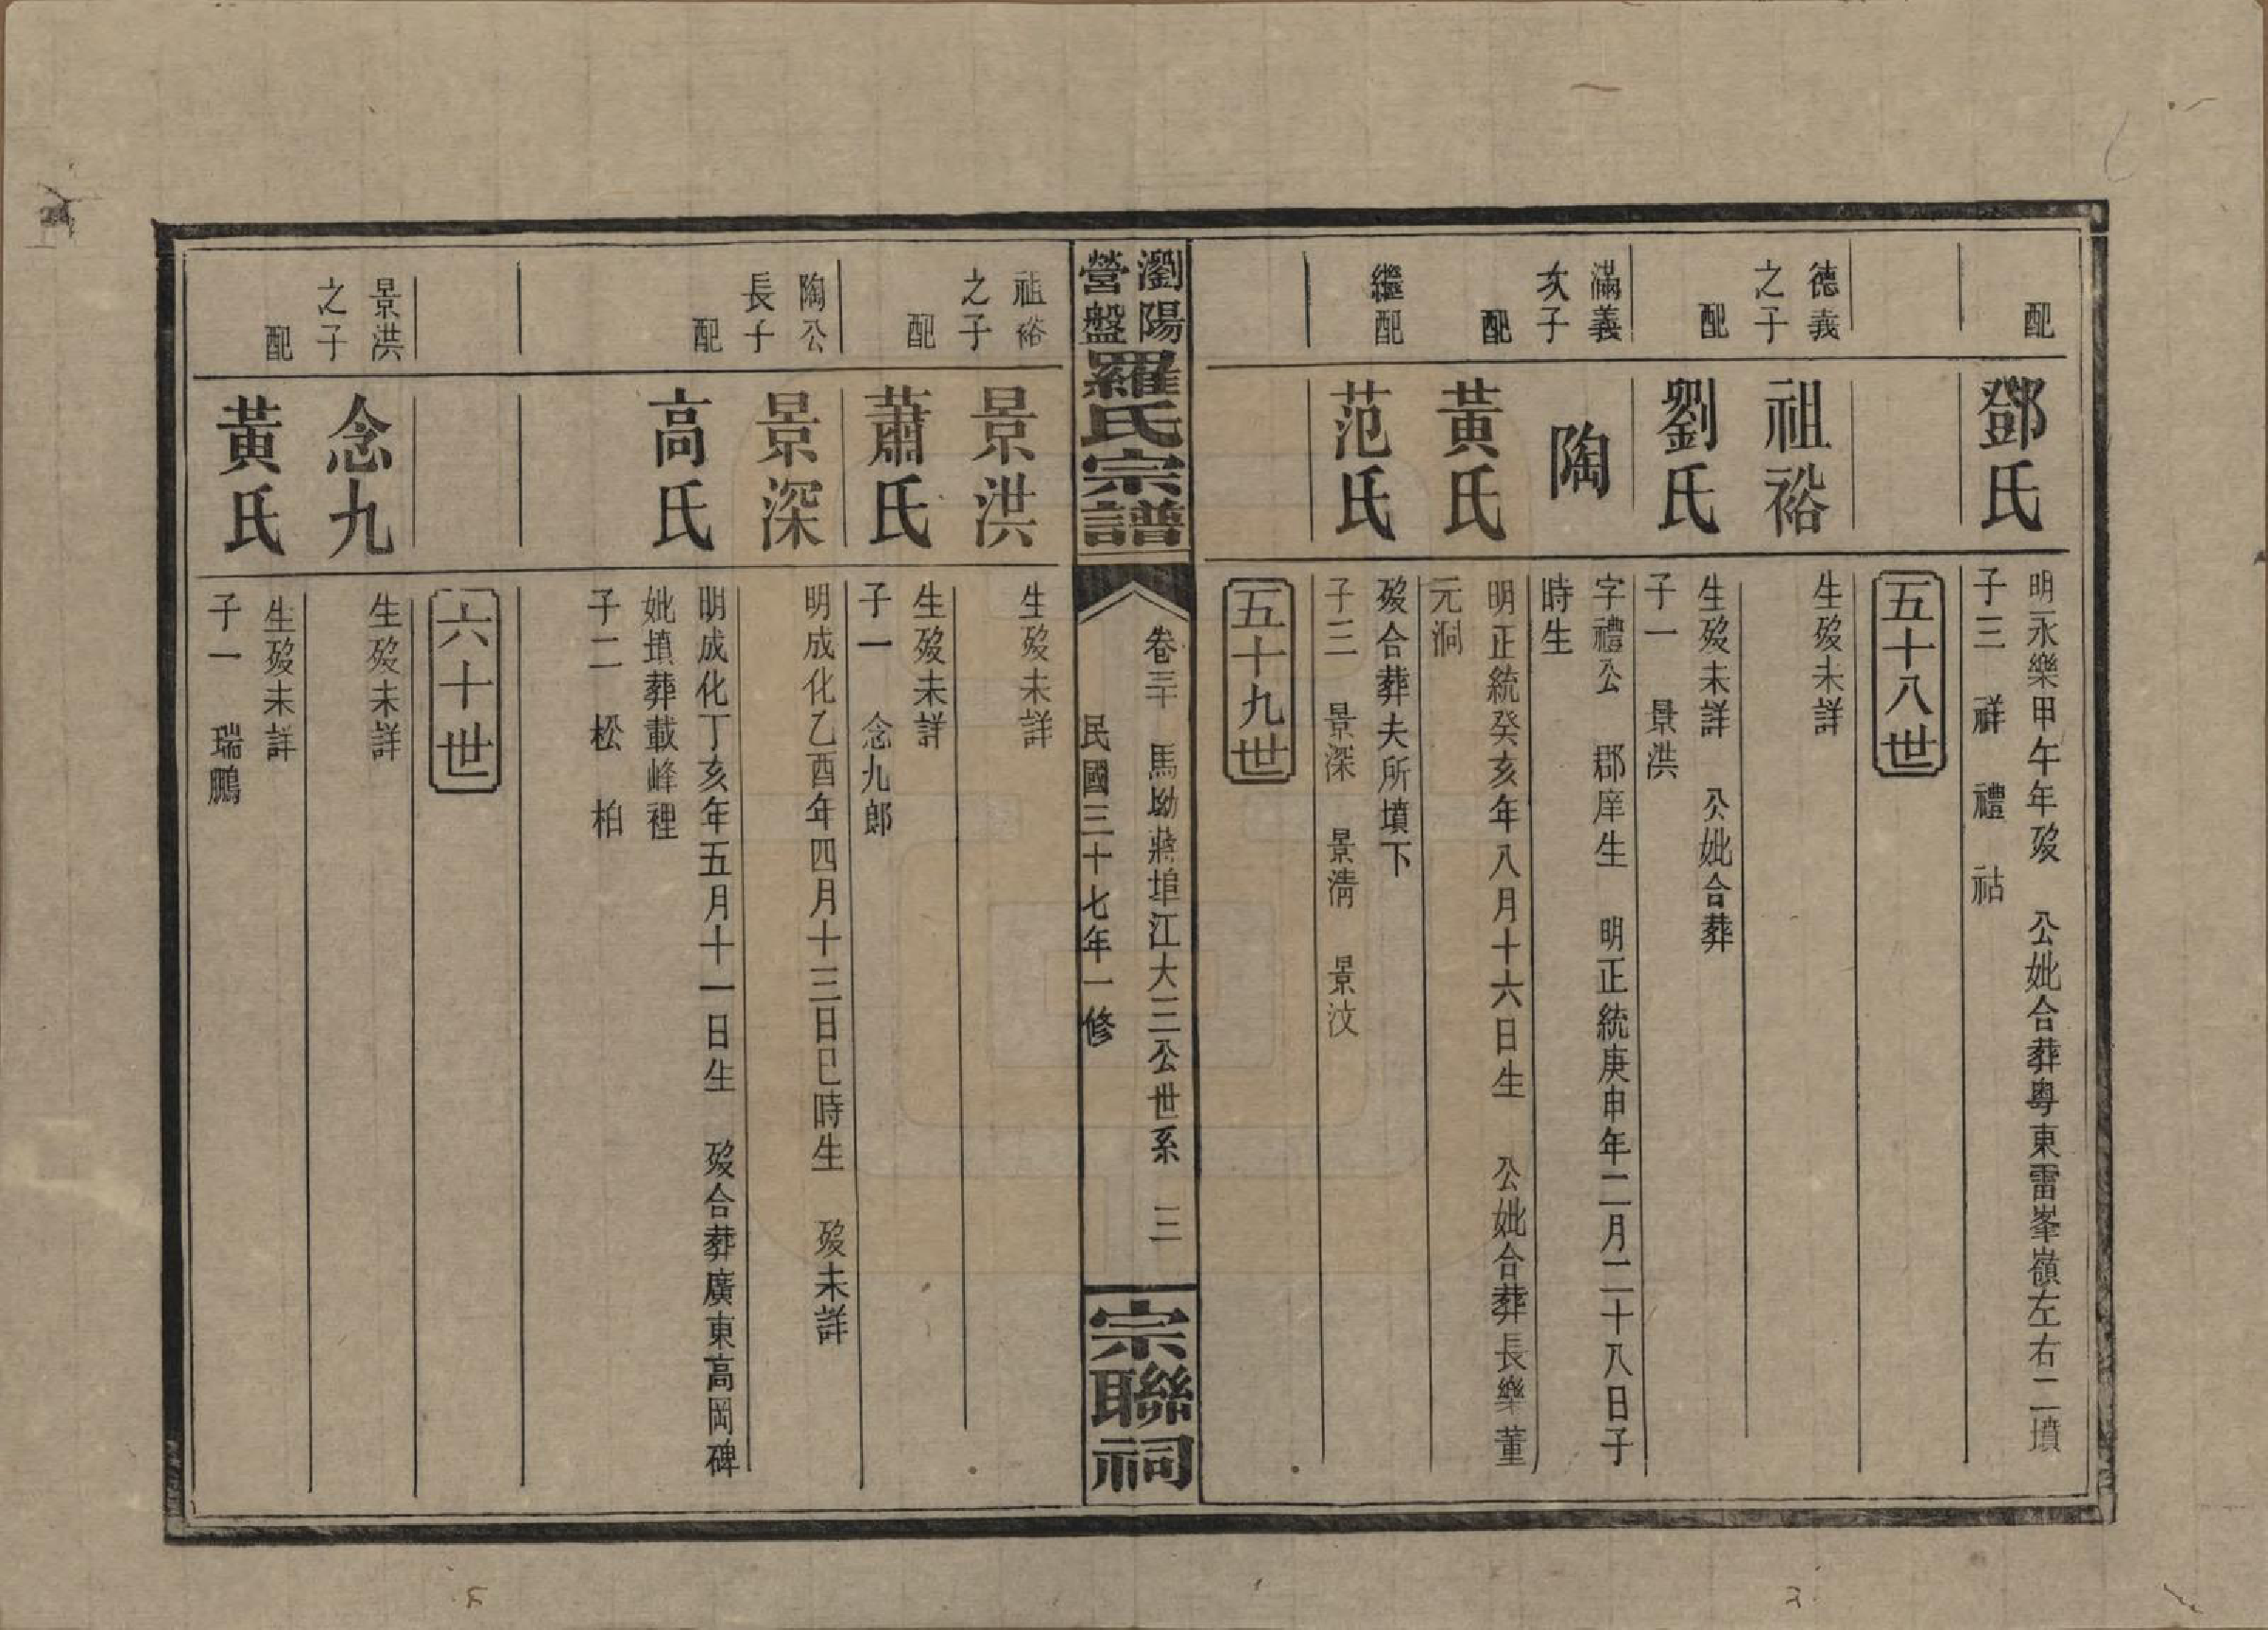 配
鄧氏
明永樂甲午年歿　公妣合葬粤東雷峯嶺左右二墳
子三　祥　禮　祜
五十八世
德義之子
祖裕
生歿未詳
配
劉氏
生歿未詳　公妣合葬
子一　景洪
滿義次子
陶
字禮公　郡庠生　明正統庚申年二月二十八日子
時生
配
黃氏
明正統癸亥年八月十六日生　公妣合葬長樂董
元洞
繼配
范氏
歿合葬夫所墳下
子三　景深　景淸　景汶
五十九世
瀏陽營盤羅氏宗譜
卷三十　馬坳蔣埠江大三公世系　三
民國三十七年一修
宗聯祠
祖裕之子
景洪
生歿未詳
配
蕭氏
生歿未詳
子一　念九郎
陶公長子
景深
明成化乙酉年四月十三日巳時生　歿未詳
配
高氏
明成化丁亥年五月十一日生　歿合葬廣東高岡碑
妣墳葬載峰裡
子二　松　柏
六十世
景洪之子
念九
生歿未詳
配
黃氏
生歿未詳
子一　瑞鵬